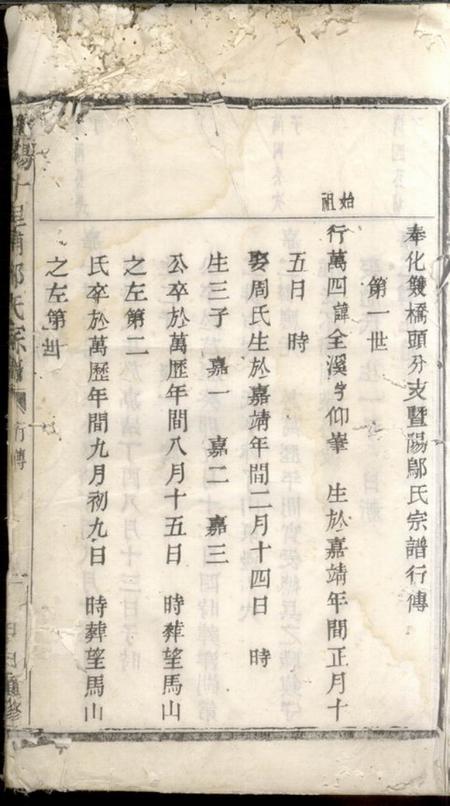 奉化雙橋頭分支暨陽鄔氏宗譜行傳
第一世
始祖
行萬四諱全溪字仰峯 生於嘉靖年間正月十
五日 時
娶周氏生於嘉靖年間二月十四日 時
生三子 嘉一 嘉二 嘉三
公卒於萬歷年間八月十五日 時葬望馬山
之左第二
氏卒於萬歷年間九月初九日 時葬望馬山
之左第 世
陽十里鋪鄔氏宗譜
行傳